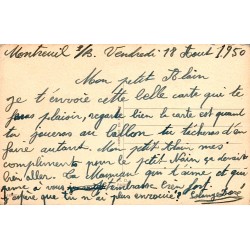 Montreuil s/B. Vendredi 18 Août 1950
Mon petit Alain
je t'envoie cette belle carte que te
feras plaisir, regarde bien le cart est quand
tu joueras au ballon tu tâcheras d'en
faire autant. Mon petit Alain mes
compliments pour le petit Alain ça devait
bien aller. La Maman qui t'aime et qui
pense à vous t'embrasse bien fort.
J'espère que tu n'ai plus enrouée?